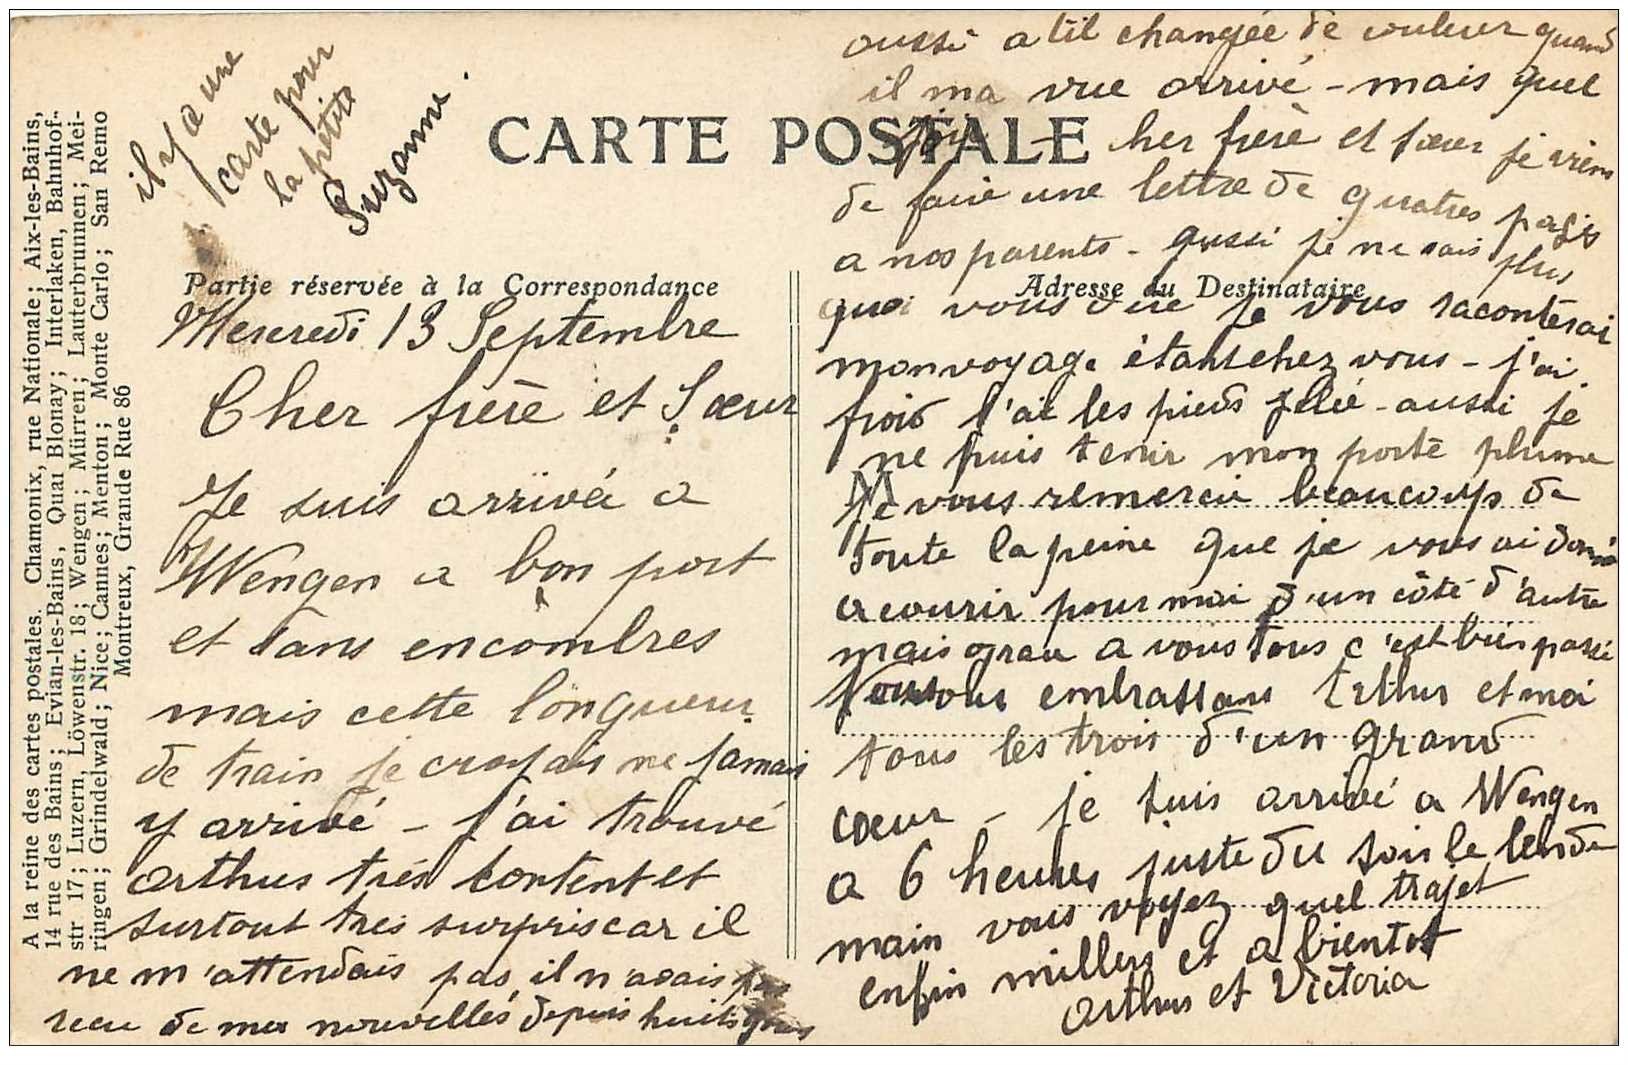 A la reine des cartes postales. Chamonix, rue Nationale; Aix-les-Bains,
14 rue des Bains; Evian-les-Bains, Quai Blonay; Interlaken, Bahnhof-
str 17; Luzern, Löwenstr. 18; Wengen; Mürren; Lauterbrunnen; Mei-
ringen; Grindelwald; Nice; Cannes; Menton; Monte Carlo; San Remo
Montreux, Grande Rue 86
il y a une
carte pour
la petite
Suzanne.
CARTE POSTALE
Partie réservée à la Correspondance
Mercredi 13 Septembre
Cher frère et Sœur
Je suis arrivée a
Wengen a bon port
et sans encombres
mais cette longueur
de train je croyais ne jamais
y arrivé - j'ai trouvé
Arthus très content et
surtout très surpris car il
ne m'attendais pas il n'avais pas
recu de mes nouvellés depuis huits jours
Adresse du Destinataire
aussi a til changée de couleur quand
il ma vue arrivé - mais quel
joie - cher frère et sœur je viens
de faire une lettre de quatres pages
a nos parents - aussi je ne sais plus
quoi vous dire je vous raconterai
mon voyage étant chez vous - j'ai
froid j'ai les pieds gelée - aussi je
ne puis tenir mon porte plume
Je vous remercie beaucoups de
toute la peine que je vous ai donné
a courir pour moi d'un côté d'autre
mais grace a vous tous c'est bien passé
Nous vous embrassons Arthus et moi
tous les trois d'un grand
cœur - je suis arrivé a Wengen
a 6 heures juste du soir le lende
main vous voyez quel trajet
enfin millers et a bientot
Arthus et Victoria